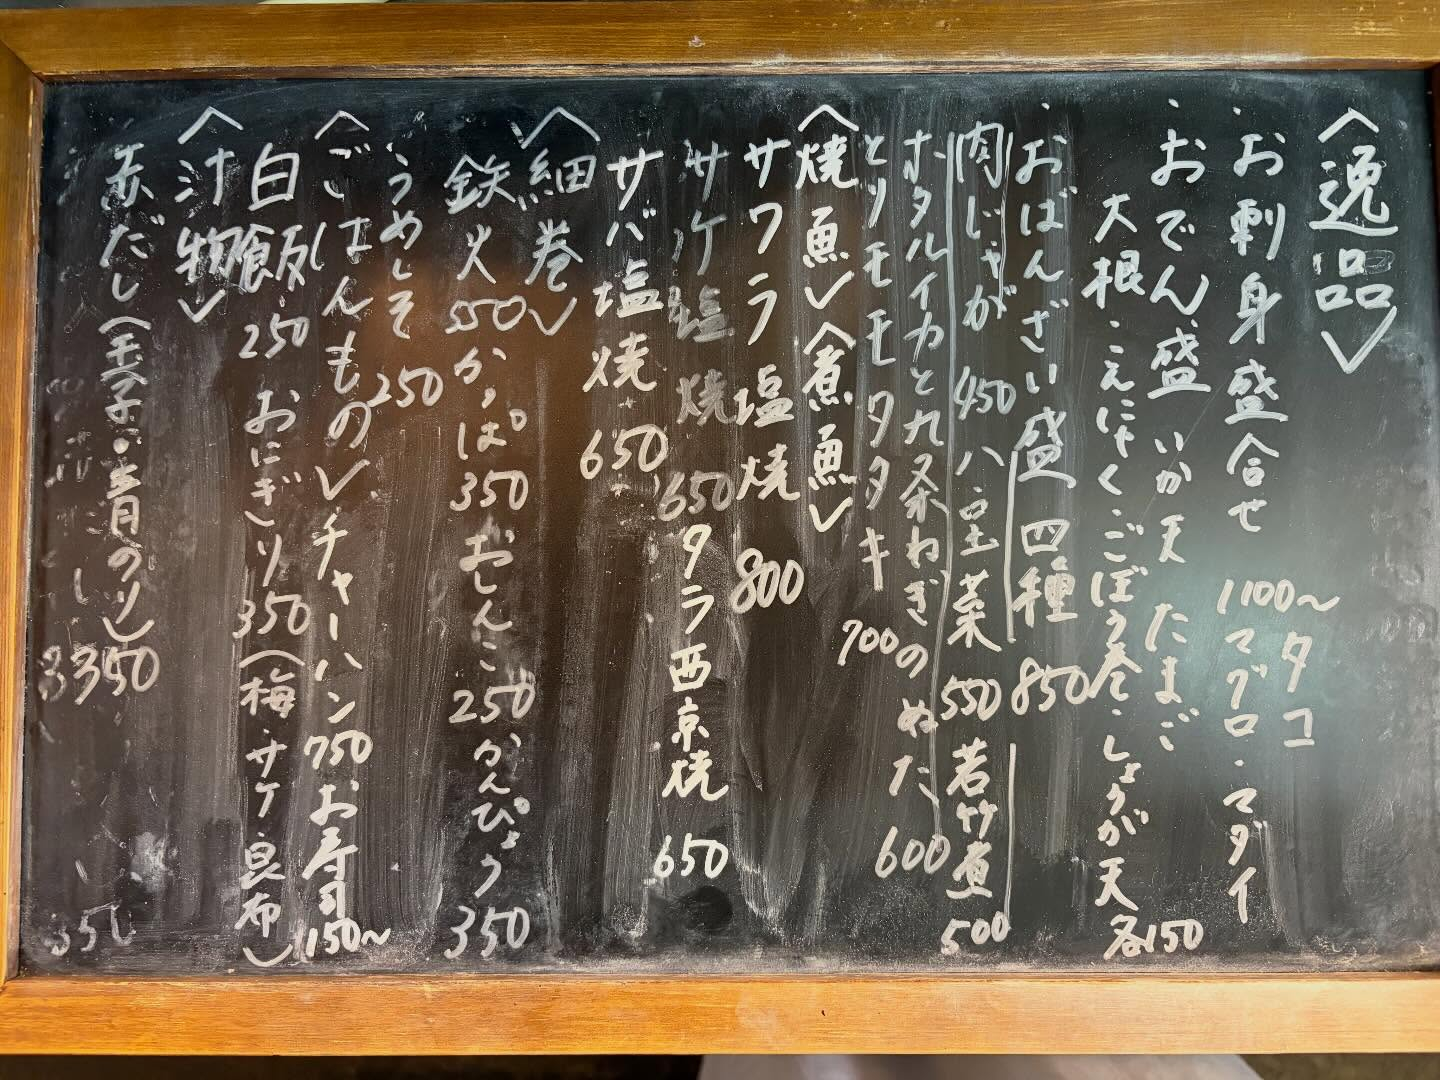 〈逸品〉
・お刺身盛合せ 1100〜 マグロ・マダイ
タコ
・おでん盛 いか天 たまご
大根・こんにゃく・ごぼう巻・しょうが天 各150
・おばんざい盛 四種 850
肉じゃが 450 八宝菜 550 若竹煮 500
ホタルイカと九条ねぎのぬた 600
とりモモタタキ 700
〈焼魚〉〈煮魚〉
サワラ塩焼 800
サケ塩焼 650 タラ西京焼 650
サバ塩焼 650
〈細巻〉
鉄火 550 かっぱ 350 おしんこ 250 かんぴょう 350
うめしそ 250
〈ごはんもの〉チャーハン 750 お寿司 150〜
白飯 250 おにぎり 350 (梅・サケ・昆布)
〈汁物〉
赤だし(玉子・青のり) 350